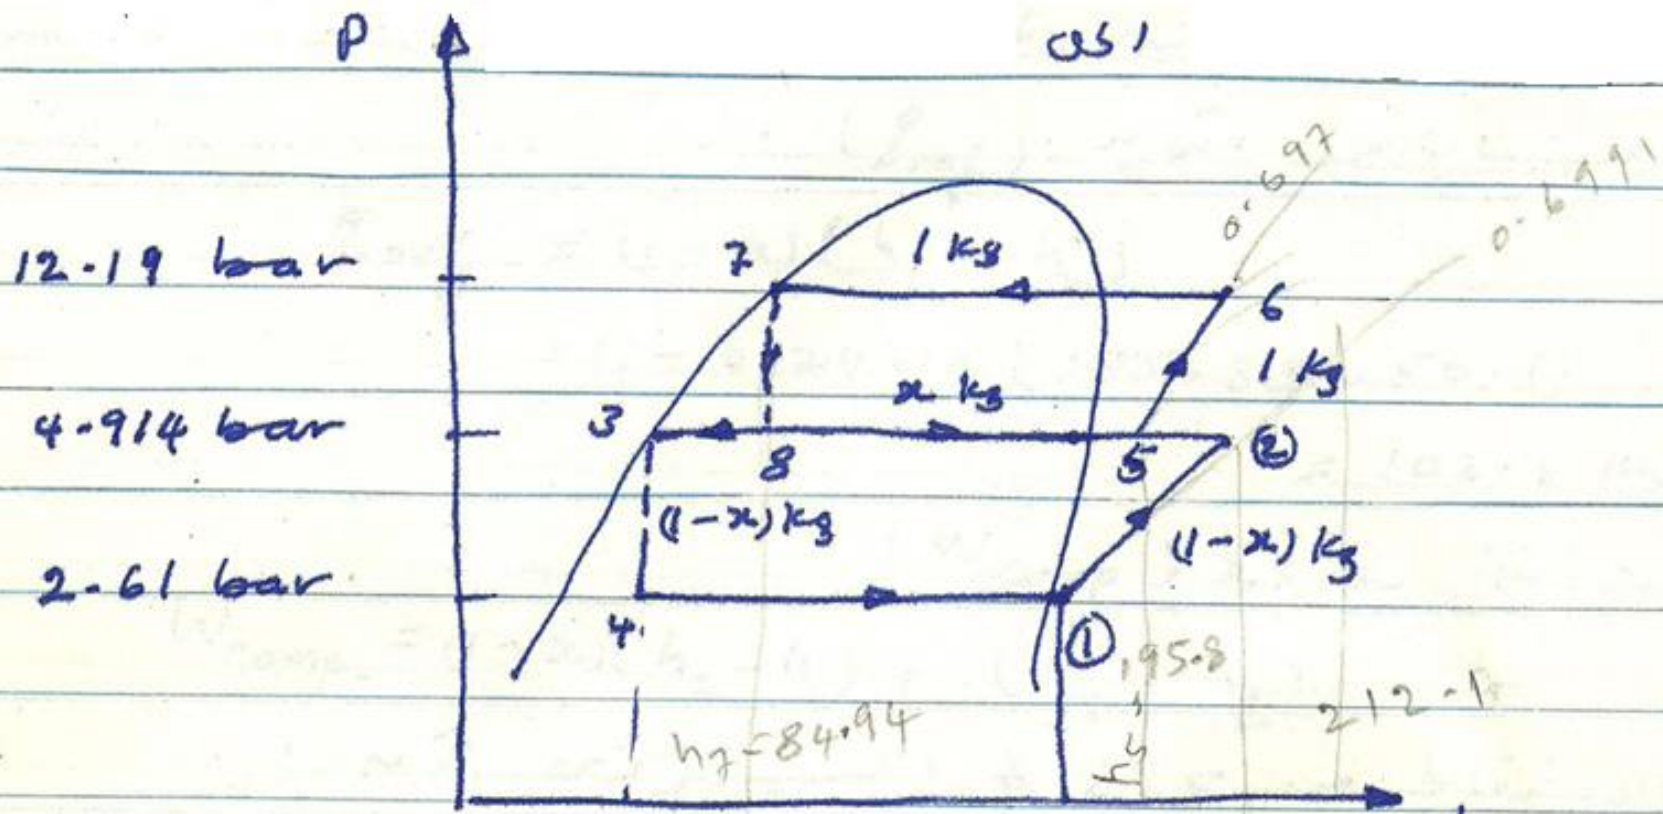 P
0.697
0.6991
12.19 bar
7
1 kg
6
1 kg
4.914 bar
3
x kg
8
5
②
(1-x) kg
(1-x) kg
2.61 bar
4
①
195.8
h7=84.94
212.1